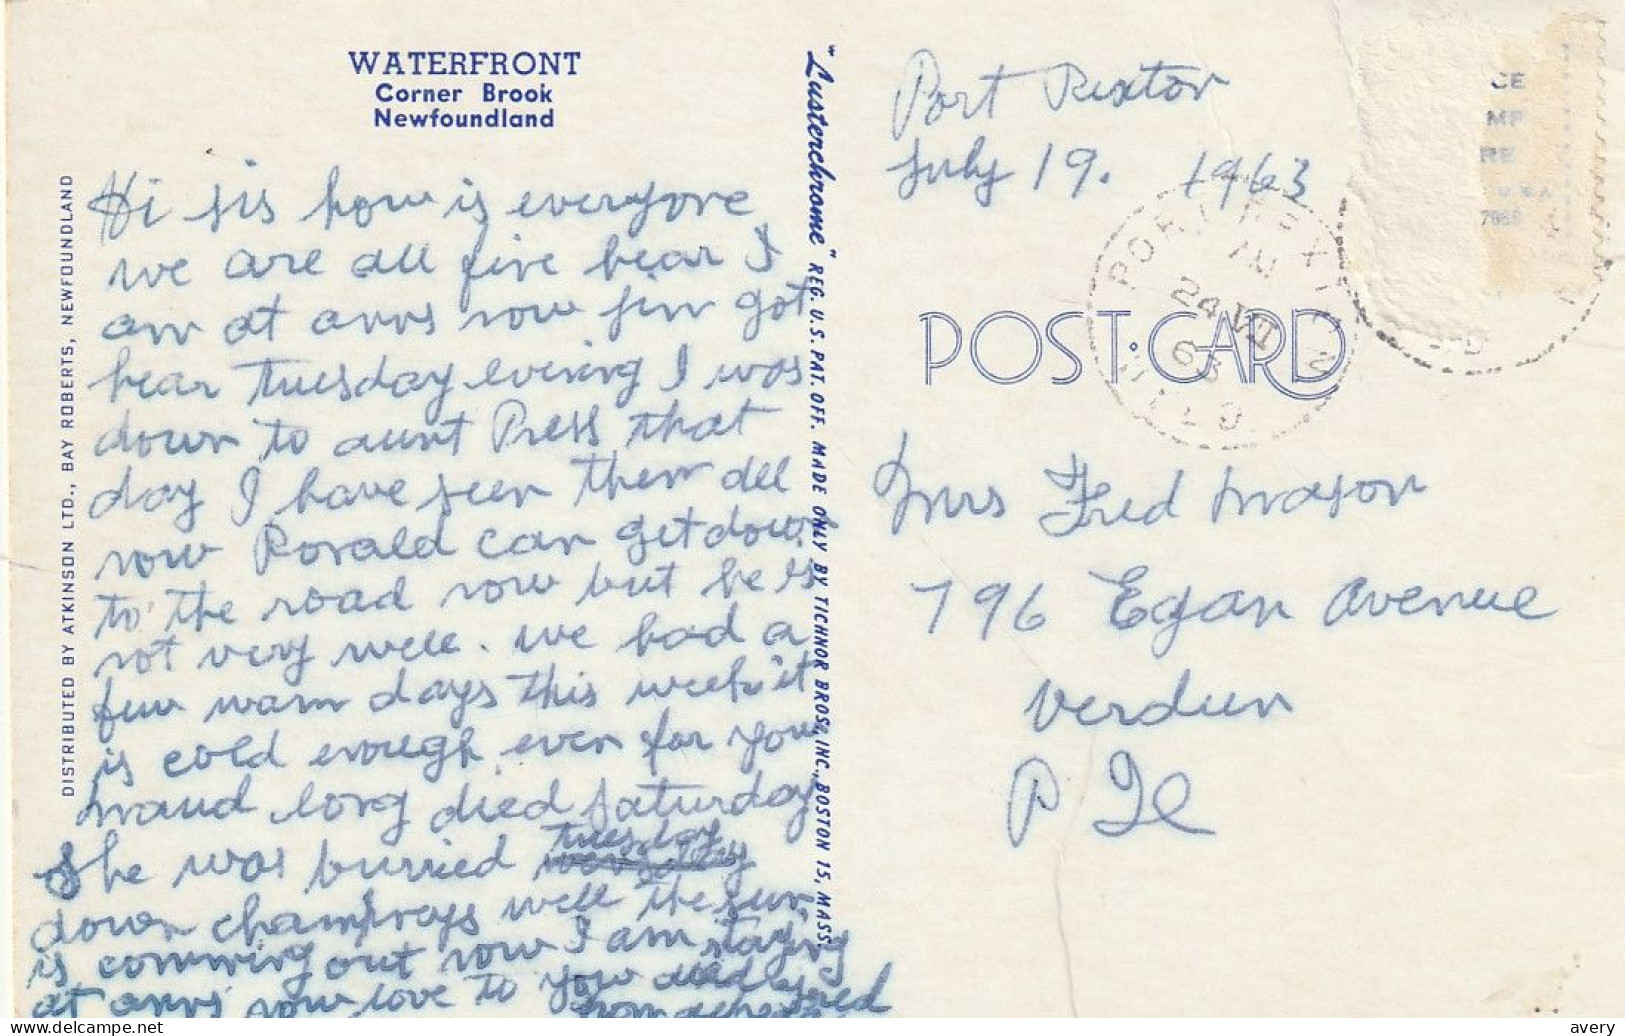 WATERFRONT
Corner Brook
Newfoundland
Hi sis how is everyone
we are all fine hear I
am at anns now jim got
hear Tuesday evening I was
down to aunt Press that
day I have seen them all
now Ronald can get down
to the road now but he is
not very well. we had a
few warm days this week it
is cold enough even for you
maud long died saturday
She was burried tuesday
down champneys well the sun
is comming out now I am staying
at anns now love to you and fred
from
DISTRIBUTED BY ATKINSON LTD., BAY ROBERTS, NEWFOUNDLAND
"Lusterchrome" REG. U.S. PAT. OFF. MADE ONLY BY TICHNOR BROS., INC., BOSTON 15, MASS.
Port Rexton
July 19. 1963
PORT REXTON
24 VII
63
NFLD
POST·CARD
Mrs Fred mason
796 Egan avenue
verdun
P Qe
avery